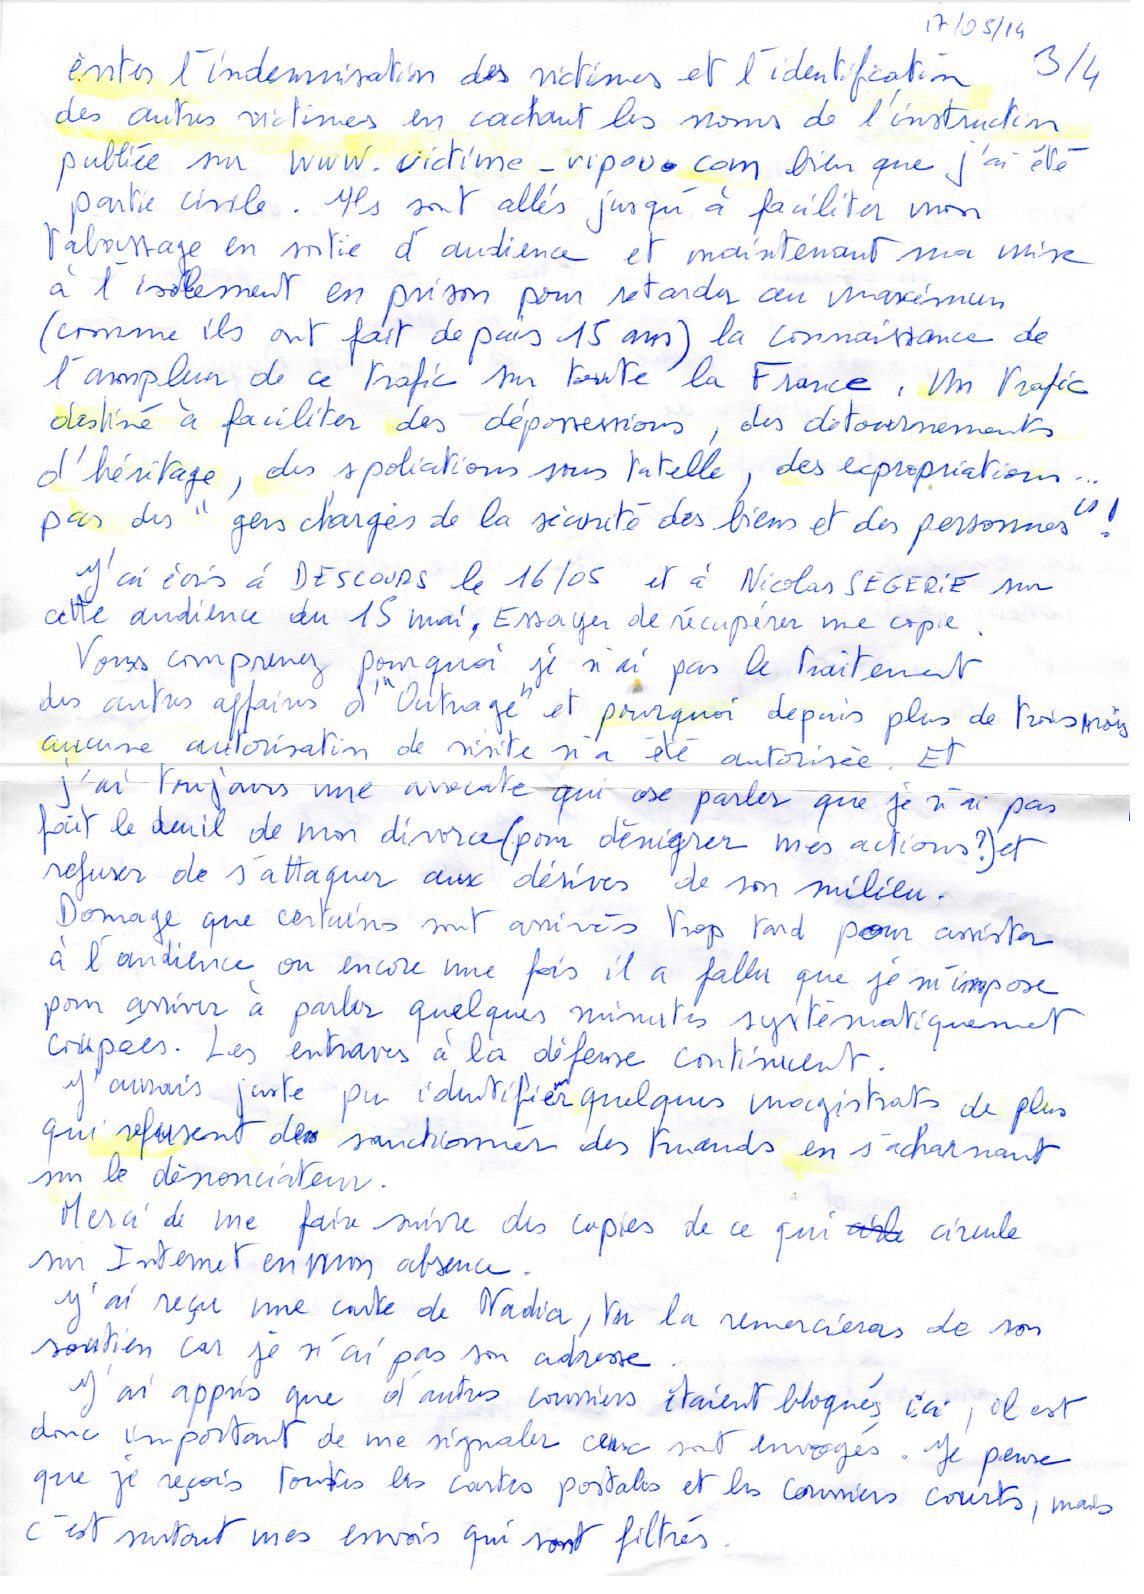 17/05/14
3/4
éviter l'indemnisation des victimes et l'identification
des autres victimes en cachant les noms de l'instruction
publiée sur www.victime-vipovo.com bien que j'ai été
partie civile. Ils sont allés jusqu'à faciliter mon
tabassage en sortie d'audience et maintenant ma mise
à l'isolement en prison pour retarder au maximum
(comme ils ont fait depuis 15 ans) la connaissance de
l'ampleur de ce trafic sur toute la France. Un trafic
destiné à faciliter des dépossessions, des détournements
d'héritage, des spoliations sous tutelle, des expropriations...
pas des "gens chargés de la sécurité des biens et des personnes"!
J'ai écris à DESCOURS le 16/05 et à Nicolas SEGERIE sur
cette audience du 15 mai, Essayer de récupérer une copie.
Vous comprenez pourquoi je n'ai pas le traitement
des autres affaires d'"Outrage" et pourquoi depuis plus de trois mois
aucune autorisation de visite n'a été autorisée. Et
j'ai toujours une avocate qui ose parler que je n'ai pas
fait le deuil de mon divorce (pour dénigrer mes actions?) et
refuser de s'attaquer aux dérives de son milieu.
Domage que certains sont arrivés trop tard pour assister
à l'audience ou encore une fois il a fallu que je m'impose
pour arriver à parler quelques minutes systématiquemet
coupées. Les entraves à la défense continuent.
J'aurais juste pu identifier quelques magistrats de plus
qui refusent de sanctionner des truands en s'acharnant
sur le dénonciateur.
Merci de me faire suivre des copies de ce qui circule
sur Internet en mon absence.
J'ai reçu une carte de Nadia, tu la remercieras de son
soutien car je n'ai pas son adresse.
J'ai appris que d'autres courriers étaient bloqués ici, il est
donc important de me signaler ceux sont envoyés. Je pense
que je reçois toutes les cartes postales et les courriers courts, mais
c'est surtout mes envois qui sont filtrés.